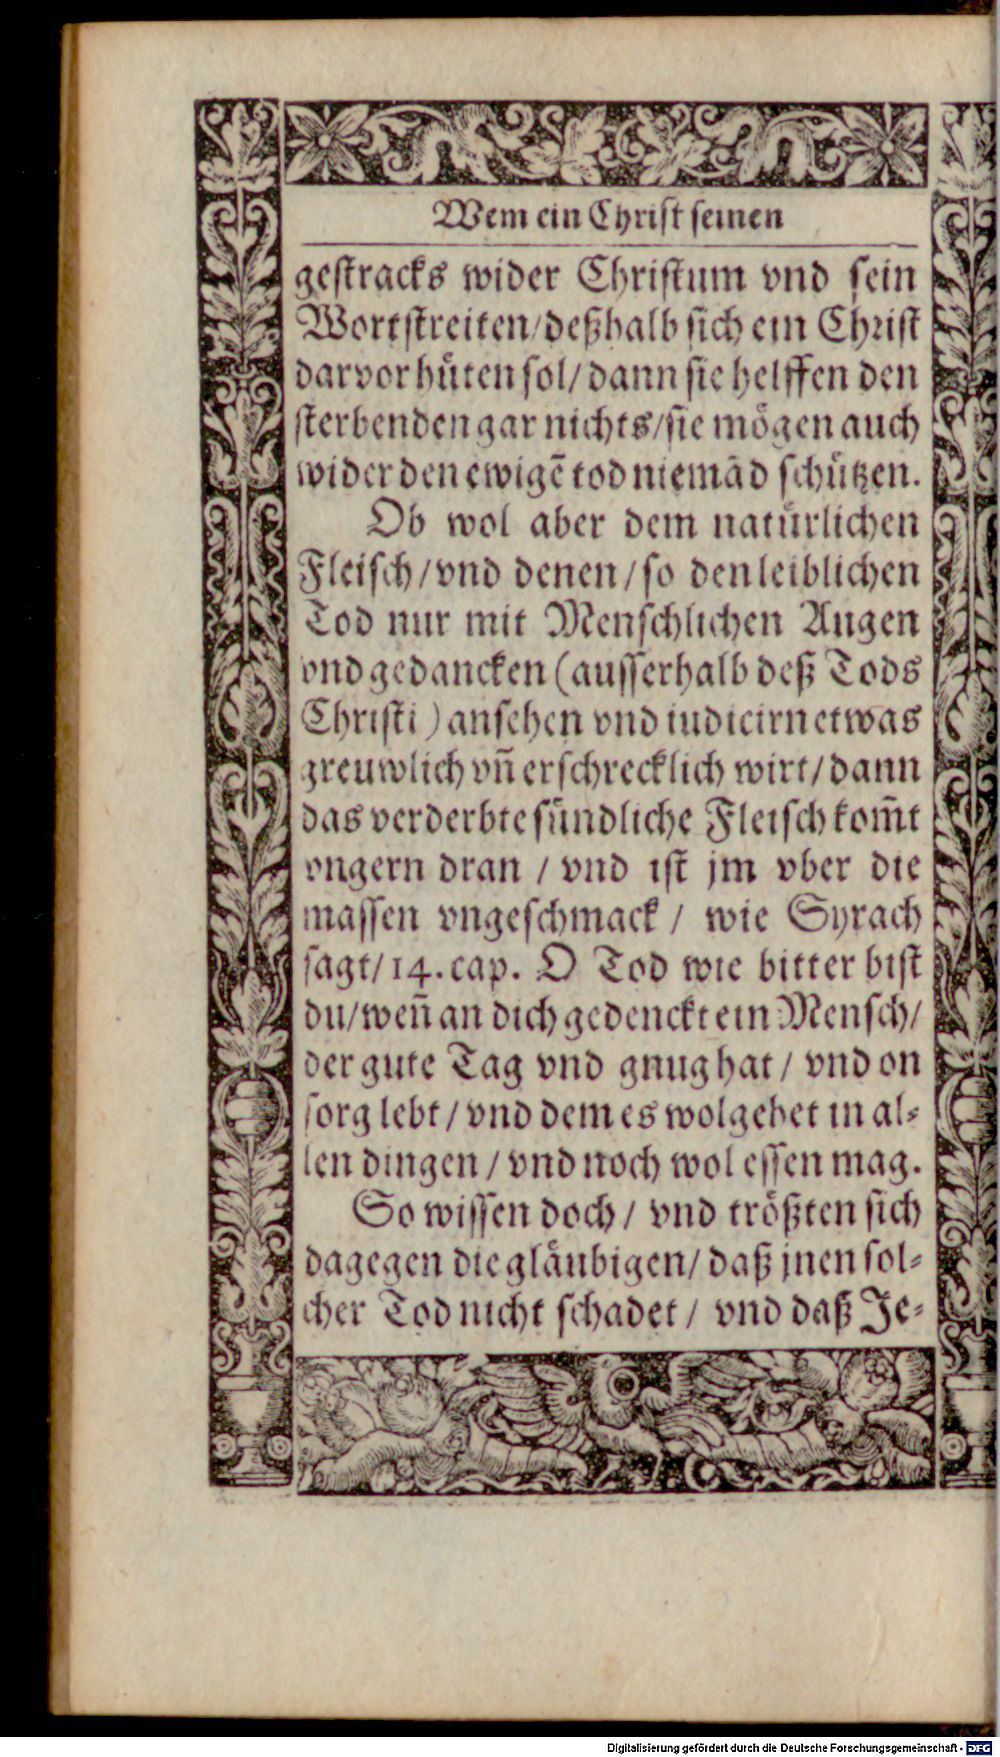 Wem ein Christ seinen
gestracks wider Christum vnd sein
Wort streiten/ deßhalb sich ein Christ
darvor huͤten sol/ dann sie helffen den
sterbenden gar nichts/ sie moͤgen auch
wider den ewigẽ tod niemãd schuͤtzen.
Ob wol aber dem natuͤrlichen
Fleisch/ vnd denen/ so den leiblichen
Tod nur mit Menschlichen Augen
vnd gedancken (ausserhalb deß Tods
Christi) ansehen vnd iudicirn etwas
greuwlich vñ erschrecklich wirt/ dann
das verderbte suͤndliche Fleisch kom̃t
vngern dran / vnd ist jm vber die
massen vngeschmack / wie Syrach
sagt/ 14. cap. O Tod wie bitter bist
du/ weñ an dich gedenckt ein Mensch/
der gute Tag vnd gnug hat / vnd on
sorg lebt / vnd dem es wolgehet in al⸗
len dingen / vnd noch wol essen mag.
So wissen doch / vnd troͤßten sich
dagegen die glaͤubigen/ daß jnen sol⸗
cher Tod nicht schadet / vnd daß Je⸗
Digitalisierung gefördert durch die Deutsche Forschungsgemeinschaft - DFG